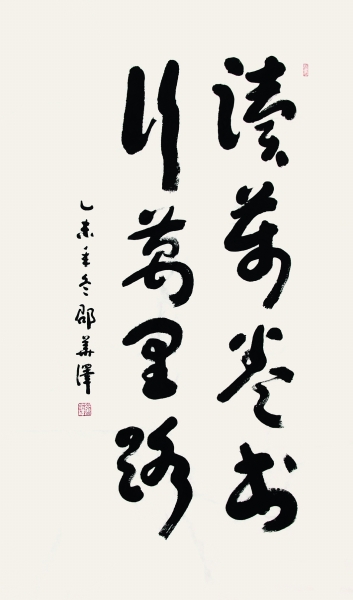 讀萬卷书
行萬里路
乙未年冬邵華澤